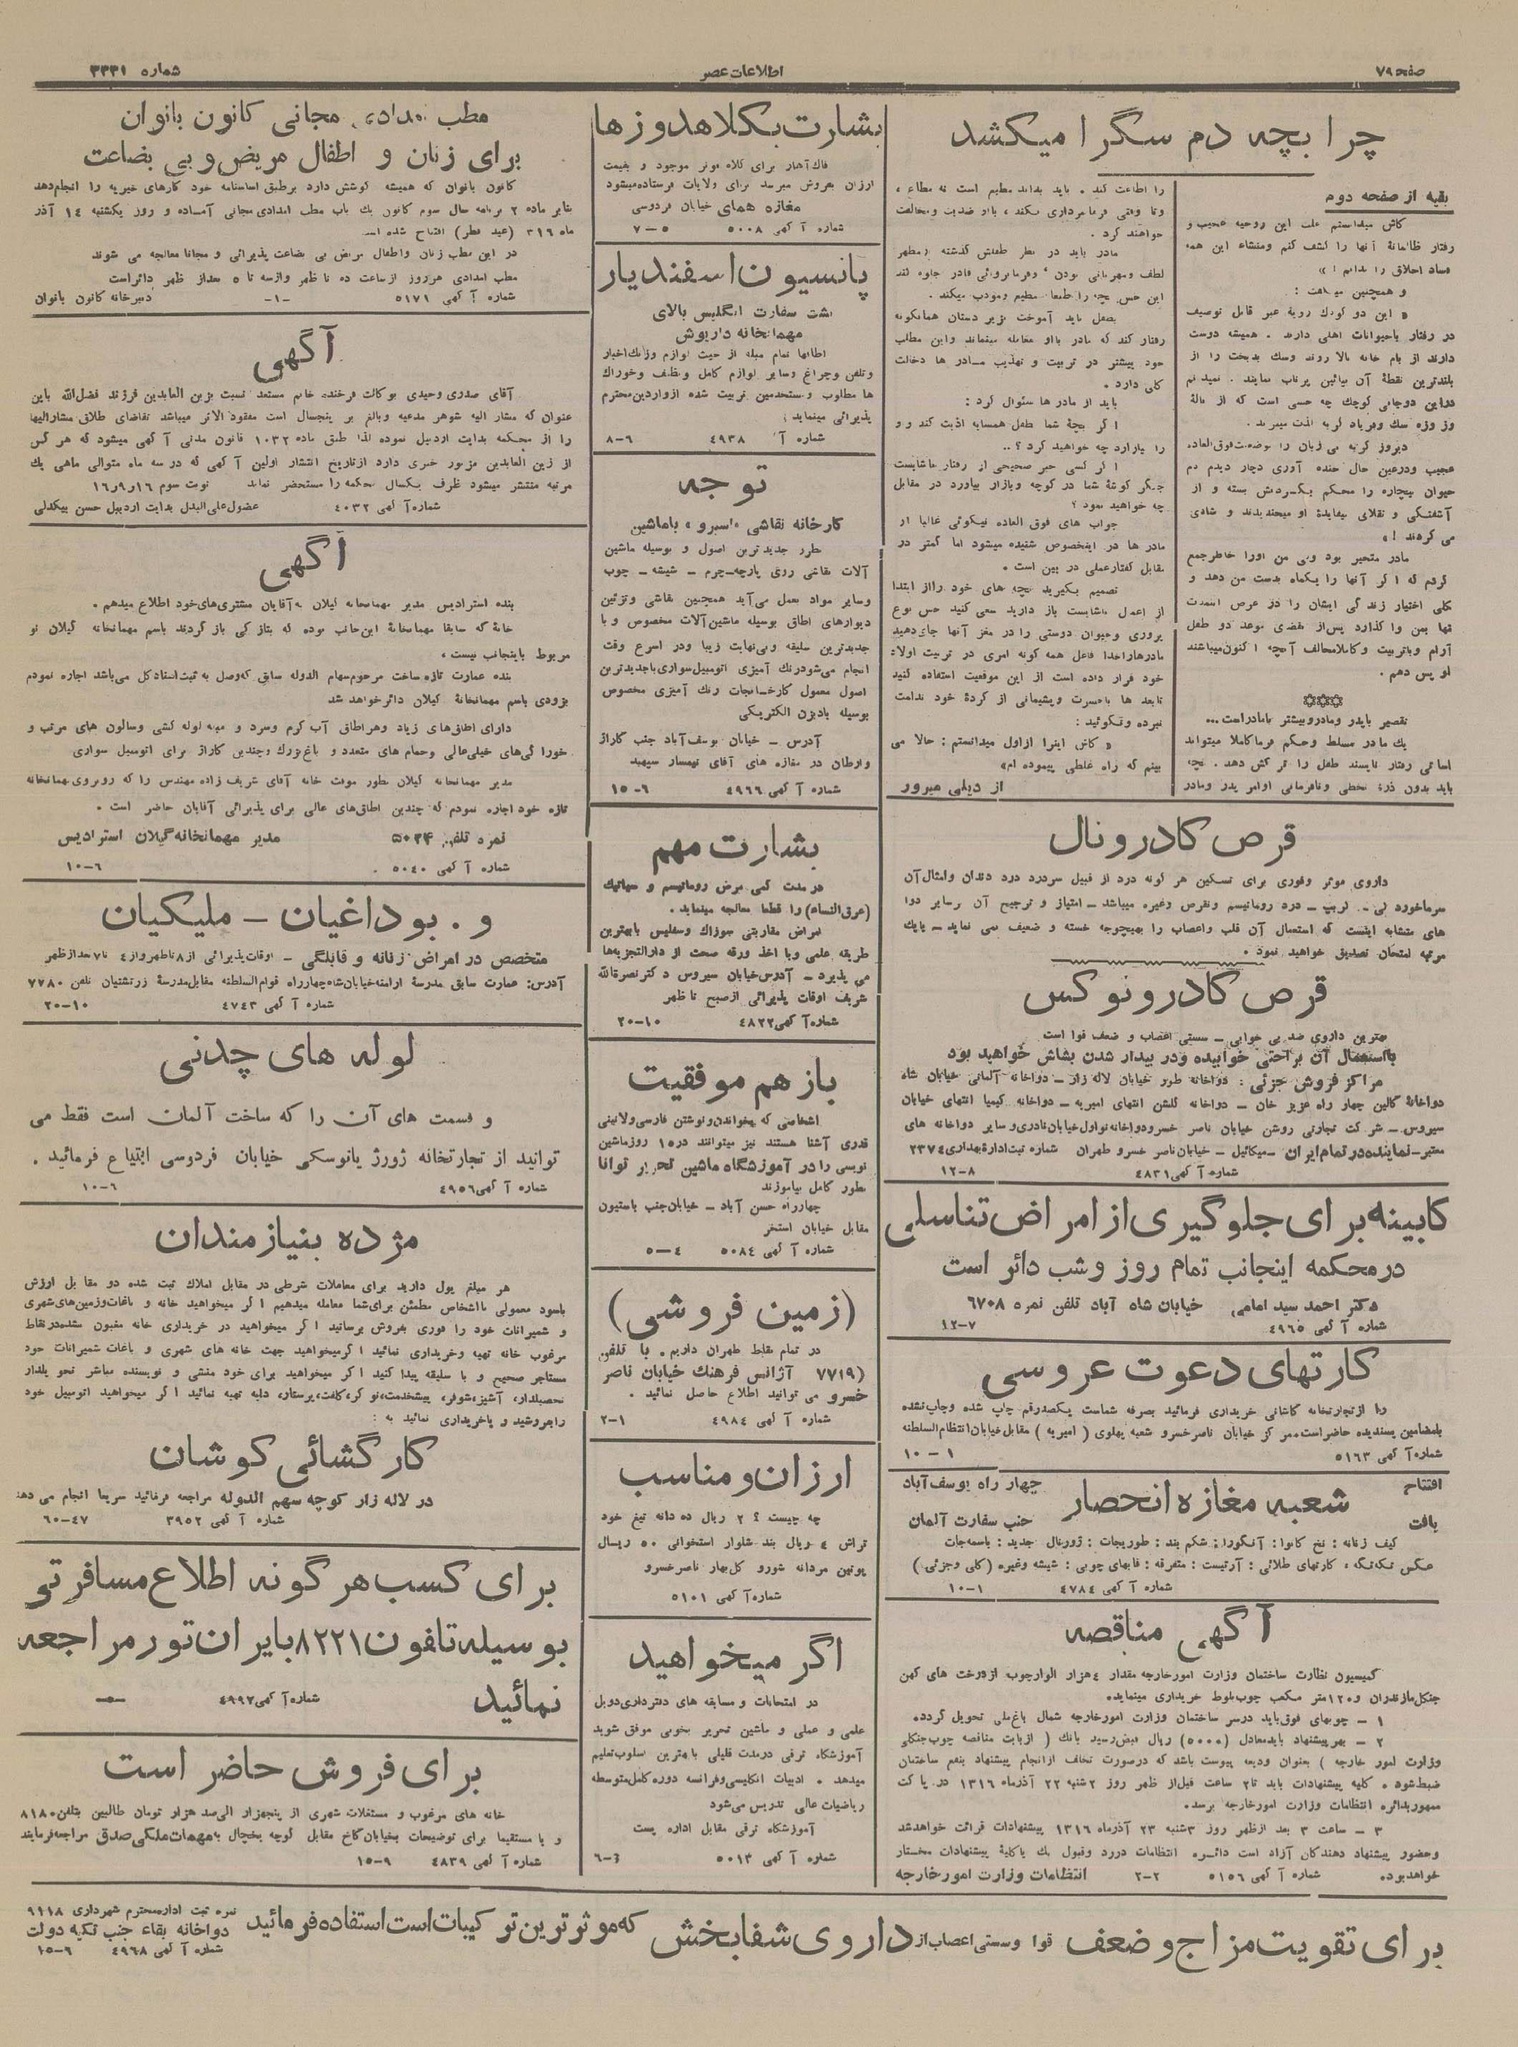 صفحه ۷۹
اطلاعات عصر
شماره ۳۳۳۱
چرا بچه دم سگ را میکشد
بقیه از صفحه دوم
کاش میدانستم علت این روحیه عجیب و
رفتار ظالمانهٔ آنها را کشف کنم ومنشاء این همه
فساد اخلاق را بدانم !»
و همچنین
« این دو کودک رویهٔ غیر قابل توصیف
در رفتار باحیوانات اهلی دارند . همیشه دوست
دارند از بام خانه بالا روند وسگ بدبخت را از
بلندترین نقطهٔ آن بپائین پرتاب نمایند . نمیدانم
دراین دوجانی کوچک چه حسی است که از نالهٔ
وزوزه سگ وفریاد گربه لذت میبرند.
دیروز گربه بی زبان را بوضعیت فوق‌العاده
عجیب ودرعین حال خنده آوری دچار دیدم دم
حیوان بیچاره را محکم بگردنش بسته و از
آشفتگی و تقلای بیفایدهٔ او میخندیدند و شادی
می کردند !»
مادر متحیر بود ولی من اورا خاطرجمع
کردم که اگر آنها را یکماه بدست من دهد و
کلی اختیار زندگی ایشان را در عرض اینمدت
تنها بمن واگذارد پس‌از تقضی موعد دو طفل
آرام وباتربیت وکاملامخالف آنچه اکنون‌میباشند
او پس دهم .
تقصیر باپدر ومادروبیشتر بامادراست...
یک مادر مسلط وحکم فرماکاملا میتواند
اساس رفتار ناپسند طفل را ترکش دهد . بچه
باید بدون ذرهٔ تخطی ونافرمانی اوامر پدر ومادر
را اطاعت کند . باید بداند مطیع است نه مطاع ،
وتا وقتی فرمانبرداری نکند ، بااو ضدیت ومخالفت
خواهند کرد .
مادر باید در نظر طفلش گذشته ازمظهر
لطف ومهربانی بودن ، وفرمانروائی قادر جلوه کند
این حس بچه را طبعا مطیع ومودب میکند .
بطفل باید آموخت بزیر دستان همانگونه
رفتار کند که مادر بااو معامله مینماید واین مطلب
خود بیشتر در تربیت و تهذیب مادر ها دخالت
کلی دارد .
باید از مادرها سئوال کرد :
اگر بچهٔ شما بطفل همسایه اذیت کند و و
را بیازارد چه خواهید کرد ؟ ..
اگر کسی خبر صحیحی از رفتار ناشایست
جگر گوشهٔ شما در کوچه وبازار بیاورد در مقابل
چه خواهید نمود ؟
جواب های فوق العاده نیکوئی غالبا از
مادر ها در اینخصوص شنیده میشود اما کمتر در
مقابل گفتارعملی در بین است .
تصمیم بگیرید بچه های خود رااز ابتدا
از اعمال ناشایست باز دارید سعی کنید حس نوع
پروری وحیوان دوستی را در مغز آنها جای‌دهید
مادرهاراخدا فاعل همه گونه امری در تربیت اولاد
خود قرار داده است از این موقعیت استفاده کنید
تابعد ها باحسرت وپشیمانی از کردهٔ خود ندامت
نبرده ونگوئید :
« کاش اینرا ازاول میدانستم : حالا می
بینم که راه غلطی پیموده ام»
از دیلی میرور
قرص کادرونال
داروی موثر وفوری برای تسکین هر گونه درد از قبیل سردرد درد دندان وامثال‌آن
سرماخوردگی – گریپ – درد روماتیسم ونقرص وغیره میباشد – امتیاز و ترجیح آن برسایر دوا
های متشابه اینست که استعمال آن قلب واعصاب را بهیچوجه خسته و ضعیف نمی نماید – بایک
مرتبه امتحان تصدیق خواهید نمود .
قرص کادرونوکس
بهترین داروی ضد بی خوابی – سستی اعصاب و ضعف قوا است
بااستعمال آن براحتی خوابیده ودر بیدار شدن بشاش خواهید بود
مراکز فروش جزئی : دواخانه طور خیابان لاله زار – دواخانه آلمانی خیابان شاه
دواخانهٔ گالین چهار راه عزیز خان – دواخانه گلشن انتهای امیریه – دواخانه کیمیا انتهای خیابان
سیروس – شرکت تجارتی روشن خیابان ناصر خسرو دواخانه نواول خیابان‌نادری وسایر دواخانه های
معتبر – نماینده در تمام‌ایران – میکائیل – خیابان‌ناصر خسرو طهران شماره ثبت‌ادارهٔ بهداری ۲۳۷۴
شماره آگهی ۴۸۳۱ ۸–۱۲
کابینه برای جلوگیری از امراض تناسلی
درمحکمه اینجانب تمام روز وشب دائر است
دکتر احمد سید امامی خیابان شاه آباد تلفن نمره ۶۷۰۸
شماره آ گهی ۴۹۶۵ ۷–۱۲
کارتهای دعوت عروسی
را از تجارتخانه کاشانی خریداری فرمائید بصرفه شماست یکصدرقم چاپ شده وچاپ‌نشده
بامضامین پسندیده حاضراست مرکز خیابان ناصر خسرو شعبه پهلوی ( امیریه ) مقابل‌خیابان‌انتظام‌السلطنه
شماره آ گهی ۵۱۶۳ ۱ – ۱۰
افتتاح
یافت
شعبه مغازه انحصار
چهار راه یوسف آباد
جنب سفارت آلمان
کیف زنانه : نخ کاموا : آنگورا : شکم بند : طوریجات : ژورنال جدید : باسمه‌جات
عکس تکه‌تکه ، کارتهای طلائی : آرتیست : متفرقه : قابهای چوبی : شیشه وغیره ( کلی وجزئی )
شماره آ گهی ۴۷۸۴ ۱–۱۰
آگهی مناقصه
کمیسیون نظارت ساختمان وزارت امورخارجه مقدار ۴ هزار الوارچوب ازدرخت های کهن
جنگل‌مازندران و۱۲۰متر مکعب چوب‌بلوط خریداری مینماید.
۱ – چوبهای فوق‌باید درسر ساختمان وزارت امورخارجه شمال باغ‌ملی تحویل گردد.
۲ – بهرپیشنهاد بایدمعادل (۵۰۰۰) ریال قبض‌رسید بانک ( ازبابت مناقصه چوب‌جنگلی
وزارت امور خارجه ) بعنوان ودیعه پیوست باشد که درصورت تخلف ازانجام پیشنهاد بنفع ساختمان
ضبط‌شود . کلیه پیشنهادات باید تا۲ ساعت قبل‌از ظهر روز ۲شنبه ۲۲ آذرماه ۱۳۱۶ در پاکت
ممهوربدائره انتظامات وزارت امورخارجه برسد.
۳ – ساعت ۳ بعد ازظهر روز ۳شنبه ۲۳ آذرماه ۱۳۱۶ پیشنهادات قرائت خواهدشد
وحضور پیشنهاد دهندگان آزاد است دائره انتظامات دررد وقبول یک یاکلیهٔ پیشنهادات مختار
خواهدبود. شماره آ گهی ۵۱۵۶ ۲–۲ انتظامات وزارت امورخارجه
بشارت بکلاهدوزها
فاک آهار برای کلاه موتر موجود و بقیمت
ارزان بفروش میرسد برای ولایات فرستاده‌میشود
مغازه همای خیابان فردوسی
شماره آ گهی ۵۰۰۸ ۵–۷
پانسیون اسفندیار
پشت سفارت انگلیس بالای
مهمانخانه داریوش
اطاقها تمام مبله از حیث لوازم وزنگ‌اخبار
وتلفن وچراغ وسایر لوازم کامل ونظیف وخوراک
ها مطلوب ومستخدمین تربیت شده ازواردین‌محترم
پذیرائی مینماید
شماره آ ۴۹۳۸ ۶–۸
توجه
کارخانه نقاشی «اسپرو» باماشین
بطرز جدیدترین اصول و بوسیله ماشین
آلات نقاشی روی پارچه–چرم – شیشه – چوب
وسایر مواد بعمل می‌آید همچنین نقاشی وتزئین
دیوارهای اطاق بوسیله ماشین‌آلات مخصوص و با
جدیدترین سلیقه وبی‌نهایت زیبا ودر اسرع وقت
انجام می‌شودرنگ آمیزی اتومبیل‌سواری باجدیدترین
اصول معمول کارخانجات رنگ آمیزی مخصوص
بوسیله بادبزن الکتریکی
آدرس – خیابان یوسف‌آباد جنب گاراژ
وارطان در مغازه های آقای تیمسار سپهبد
شماره آ گهی ۴۹۶۶ ۶–۱۵
بشارت مهم
در مدت کمی مرض روماتیسم و سیاتیک
(عرق‌النساء) را قطعا معالجه مینماید .
امراض مقاربتی سوزاک وسفلیس بابهترین
طریقه علمی وبا اخذ ورقه صحت از دارالتجزیه‌ها
می پذیرد – آدرس‌خیابان سیروس دکترنصرة‌الله
شریف اوقات پذیرائی ازصبح تاظهر
شماره آ گهی ۴۸۲۲ ۱۰–۲۰
باز هم موفقیت
اشخاصی که بخواندن‌ونوشتن فارسی‌ولاتینی
قدری آشنا هستند نیز میتوانند در۱۵ روزماشین
نویسی را در آموزشگاه ماشین تحریر توانا
بطور کامل بیاموزند
چهارراه حسن آباد – خیابان‌جنب پاستیون
مقابل خیابان استخر
شماره آ گهی ۵۰۸۴ ۴–۵
(زمین فروشی)
در تمام نقاط طهران داریم . با تلفن
(۷۷۱۹ آژانس فرهنگ خیابان ناصر
خسرو می توانید اطلاع حاصل نمائید .
شماره آ گهی ۴۹۸۴ ۱–۲
ارزان ومناسب
چه چیست ؟ ۲ ریال ده دانه تیغ خود
تراش ۴ ریال بند شلوار استخوانی ۵۰ ریسال
پوتین مردانه شورو گل‌بهار ناصرخسرو
شماره آ گهی ۵۱۰۱
اگر میخواهید
در امتحانات و مسابقه های دفترداری‌دوبل
علمی و عملی و ماشین تحریر بخوبی موفق شوید
آموزشگاه ترقی درمدت قلیلی بابهترین سلوب‌تعلیم
میدهد . ادبیات انگلیسی‌وفرانسه دوره کامل‌متوسطه
ریاضیات عالی تدریس می‌شود
آموزشگاه ترقی مقابل اداره پست
شماره آ گهی ۵۰۱۳ ۶–
مطب امدادی مجانی کانون بانوان
برای زنان و اطفال مریض وبی بضاعت
کانون بانوان که همیشه کوشش دارد برطبق اساسنامه خود کارهای خیریه را انجام‌دهد
بنابر ماده ۲ برنامه سال سوم کانون یک باب مطب امدادی مجانی آماده و روز یکشنبه ۱۴ آذر
ماه ۳۱۶ (عید فطر) افتتاح شده است
در این مطب زنان واطفال مریض بی بضاعت پذیرائی و مجانا معالجه می شوند
مطب امدادی هرروز ازساعت ده تا ظهر وازسه تا ۵ بعداز ظهر دائراست
شماره آ گهی ۵۱۷۱ –۱– دبیرخانه کانون بانوان
آگهی
آقای صدری وحیدی بوکالت فرخنده خانم مستعد نسبت بزین العابدین فرزند فضل‌الله باین
عنوان که مشار الیه شوهر مدعیه وبالغ بر پنجسال است مفقود الاثر میباشد تقاضای طلاق مشارالیها
را از محکمه بدایت اردبیل نموده لذا طبق ماده ۱۰۲۳ قانون مدنی آ گهی میشود که هر کس
از زین العابدین مزبور خبری دارد ازتاریخ انتشار اولین آ گهی که در سه ماه متوالی ماهی یک
مرتبه منتشر میشود ظرف یکسال محکمه را مستحضر نماید نوبت سوم ۱۶ر۹ر۱۶
شماره آ گهی ۴۰۳۲ عضوعلی‌البدل بدایت اردبیل حسن بیکدلی
آگهی
بنده استرادیس مدیر مهمانخانه گیلان بآقایان مشتری‌های‌خود اطلاع میدهم .
خانهٔ که سابقا مهمانخانهٔ این‌جانب بوده که بتازگی باز گردند باسم مهمانخانه گیلان نو
مربوط باینجانب نیست ،
بنده عمارت تازه ساخت مرحوم‌سهام الدوله سابق که‌وصل به ثبت‌اسنادکل می‌باشد اجاره نمودم
بزودی باسم مهمانخانهٔ گیلان دائرخواهد شد
دارای اطاق‌های زیاد وهراطاق آب گرم وسرد و مبله لوله کشی وسالون های مرتب و
خوراکی‌های خیلی‌عالی وحمام های متعدد و باغ‌بزرگ وچندین گاراژ برای اتومبیل سواری
مدیر مهمانخانه گیلان بطور موقت خانه آقای شریف زاده مهندس را که روبروی مهمانخانه
تازه خود اجاره نمودم که چندین اطاق‌های عالی برای پذیرائی آقایان حاضر است .
نمره تلفن ۵۰۲۴ مدیر مهمانخانه گیلان استرادیس
شماره آ گهی ۵۰۴۰ ۶–۱۰
و . بوداغیان – ملیکیان
متخصص در امراض زنانه و قابلگی – اوقات‌پذیرائی از۸ تاظهرواز۴ تا۷ بعدازظهر
آدرس: عمارت سابق مدرسهٔ ارامنه‌خیابان‌شاه‌چهارراه قوام‌السلطنه مقابل‌مدرسهٔ زرتشتیان تلفن ۷۷۸۰
شماره آ گهی ۴۷۴۳ ۱۰–۲۰
لوله های چدنی
و قسمت های آن را که ساخت آلمان است فقط می
توانید از تجارتخانه ژورژ یانوسکی خیابان فردوسی ابتیاع فرمائید .
شماره آ گهی ۴۹۵۶ ۶–۱۰
مژده بنیازمندان
هر مبلغ پول دارید برای معاملات شرطی در مقابل املاک ثبت شده دو مقابل ارزش
باسود معمولی بااشخاص مطمئن برای‌شما معامله میدهیم اگر میخواهید خانه و باغات وزمین‌های‌شهری
و شمیرانات خود را فوری بفروش برسانید اگر میخواهید در خریداری خانه مغبون نشده‌درنقاط
مرغوب خانه تهیه وخریداری نمائید اگرمیخواهید جهت خانه های شهری و باغات شمیرانات خود
مستاجر صحیح و با سلیقه پیدا کنید اگر میخواهید برای خود منشی و نویسنده مباشر تحویلدار
تحصیلدار، آشپز، شوفر، پیشخدمت، نوکر، کلفت، پرستار، دایه تهیه نمائید اگر میخواهید اتومبیل خود
رابفروشید و یاخریداری نمائید به :
کارگشائی کوشان
در لاله زار کوچه سهم الدوله مراجعه فرمائید سریعا انجام می دهد
شماره آ گهی ۳۹۵۲ ۴۷–۶۰
برای کسب هرگونه اطلاع مسافرتی
بوسیله تلفون ۸۲۲۱ بایران تور مراجعه
نمائید
شماره آ گهی ۴۹۹۷ –۵–
برای فروش حاضر است
خانه های مرغوب و مستغلات شهری از پنجهزار الی‌صد هزار تومان طالبین بتلفن ۸۱۸۰
و یا مستقیما برای توضیحات بخیابان‌کاخ مقابل کوچه یخچال به‌مهمات‌ملکی‌صدق مراجعه‌فرمایند
شماره آ گهی ۴۸۳۹ ۹–۱۵
برای تقویت مزاج وضعف قوا وسستی اعصاب از داروی شفابخش که موثرترین ترکیبات است استفاده فرمائید
نمره ثبت اداره‌محترم شهرداری ۹۱۱۸
دواخانه بقاء جنب تکیه دولت
شماره آ گهی ۴۹۶۸ ۶–۱۵